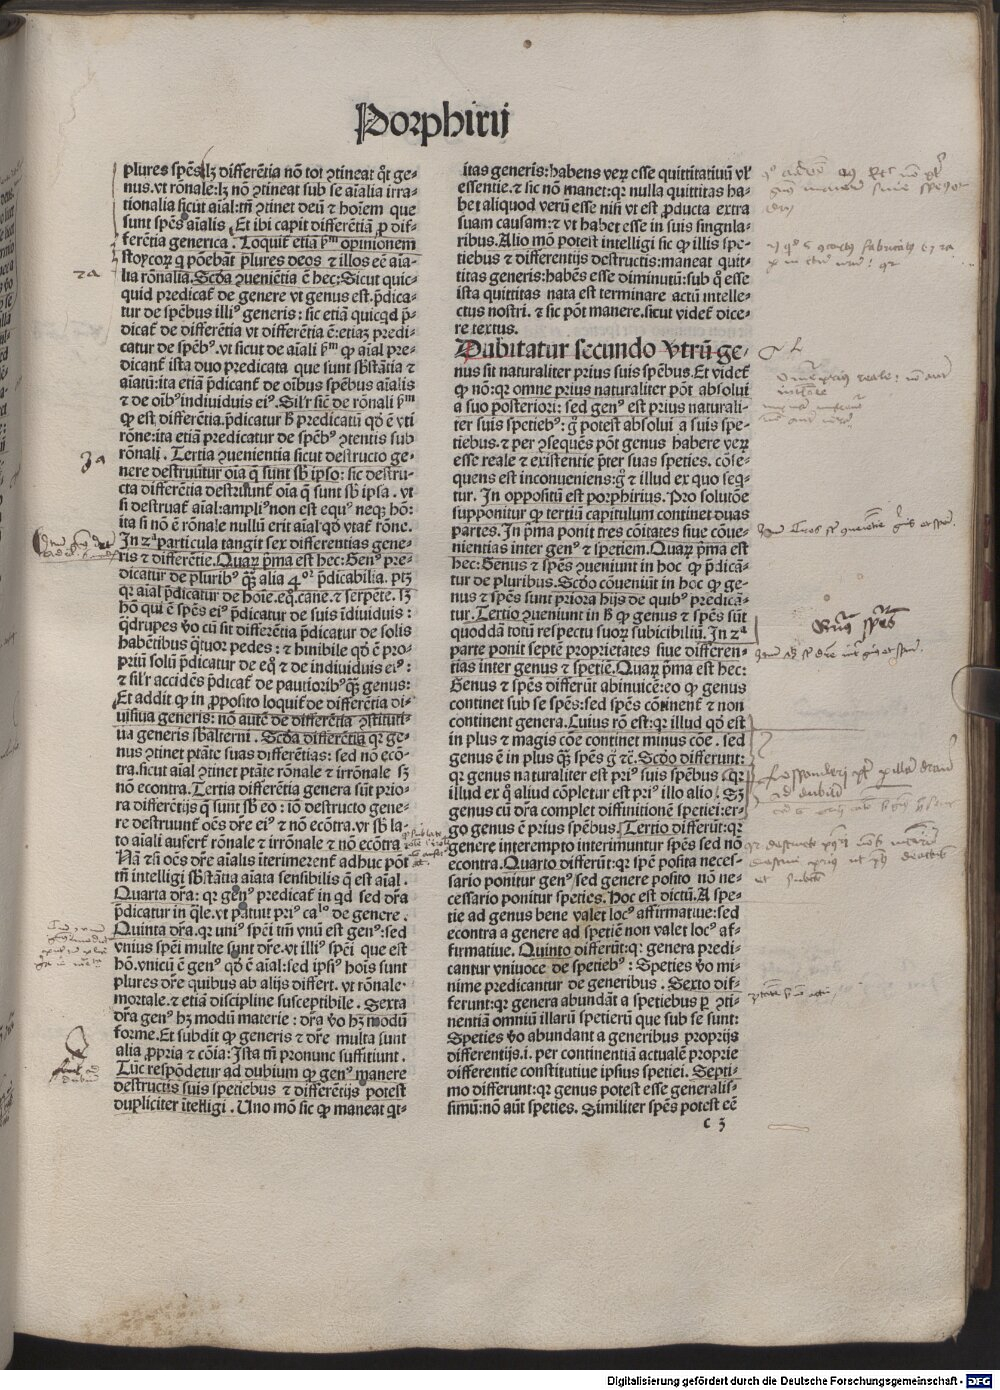 Porphirij
plures spēs lꝫ differētia nō tot ɔtineat qͣt ge-
nus. vt rōnale: lꝫ nō ɔtineat sub se aīalia irra-
tionalia sicut aīal: tm̄ ɔtinet deū ⁊ hoīem que
sunt spēs aīalis. Et ibi capit differētiā ꝓ dif-
ferētia generica. Loquit̉ etiā ẜm opinionem
stoycoꝝ q̄ pōebāt plures deos ⁊ illos eē aīa-
lia rōnalia. Scđa ɔueniētia ē hec: Sicut quic-
quid predicat̉ de genere vt genus est. p̄dica-
tur de spēbus illiꝰ generis: sic etiā quicqd p̄-
dicat̉ de differētia vt differētia ē: etiaꝫ predi-
catur de spēbꝰ. vt sicut de aīali ẜm ꝙ aīal pre-
dicant̉ ista duo predicata que sunt sb̄stātia ⁊
aīatū: ita etiā p̄dicant̉ de oībus spēbus aīalis
⁊ de oībꝰ indiuiduis eiꝰ. Sil'r sic̄ de rōnali ẜm
ꝙ est differētia. p̄dicatur ħ predicatū qđ ē vti
rōne: ita etiā predicatur de spēbꝰ ɔtentis sub
rōnali. Tertia ɔuenientia sicut destructo ge-
nere destruūtur oīa q̄ sunt sb̄ ipso: sic destru-
cta differētia destruūnt̉ oīa q̄ sunt sb̄ ipsa. vt
si destruat̉ aīal: ampliꝰ non est equꝰ neqꝫ hō:
ita si nō ē rōnale nullū erit aīal qđ vtat̉ rōne.
In 2ª particula tangit sex differentias gene-
ris ⁊ differētie. Quaꝝ p̄ma est hec: Genꝰ pre-
dicatur de pluribꝰ qͣꝫ alia 4ºʳ p̄dicabilia. ptꝫ
qꝛ aīal p̄dicatur de hoīe. eq̊. cane. ⁊ serpēte. sꝫ
hō qui ē spēs eiꝰ p̄dicatur de suis īdiuiduis:
q̄drupes v̊o cū sit differētia p̄dicatur de solis
habētibus q̄tuor pedes: ⁊ hinibile qđ ē pro-
priū solū p̄dicatur de eq̊ ⁊ de indiuiduis eiꝰ:
⁊ sil'r accidēs p̄dicat̉ de pautioribꝰ qͣꝫ genus:
Et addit ꝙ in ꝓposito loquit̉ de differētia di-
uisiua generis: nō autē de differētia ɔstituti-
ua generis sbalterni. Scđa differētia qꝛ ge-
nus ɔtinet ptāte suas differētias: sed nō ecō-
tra. sicut aīal ɔtinet ptāte rōnale ⁊ irrōnale sꝫ
nō econtra. Tertia differētia genera sūt prio-
ra differētijs q̄ sunt sb̄ eo: iō destructo gene-
re destruunt̉ oēs dr̄e eiꝰ ⁊ nō ecōtra. vt sb̄la-
to aīali aufert̉ rōnale ⁊ irrōnale ⁊ nō ecōtra.
Nā ⁊ si oēs dr̄e aīalis īterimerent̉ adhuc pōt
tm̄ intelligi sb̄stātia aīata sensibilis q̄ est aīal.
Quarta dr̄a: qꝛ genꝰ predicat̉ in qd sed dr̄a
p̄dicatur in q̄le. vt patuit priꝰ caº de genere.
Quinta dr̄a. qꝛ uniꝰ spēi tm̄ vnū est genꝰ: sed
vnius spēi multe sunt dr̄e. vt illiꝰ spēi que est
hō. vnicū ē genꝰ qđ ē aīal: sed ipsiꝰ hoīs sunt
plures dr̄e quibus ab alijs differt. vt rōnale
mortale. ⁊ etiā discipline susceptibile. Sexta
dr̄a genꝰ hꝫ modū materie: dr̄a v̊o hꝫ modū
forme. Et subdit ꝙ generis ⁊ dr̄e multa sunt
alia ꝓpria ⁊ cōia: Ista tm̄ pronunc suffitiunt.
Tūc respōdetur ad dubium ꝙ genꝰ manere
destructis suis spetiebus ⁊ differētijs potest
dupliciter ītelligi. Uno mō sic ꝙ maneat qt-
itas generis: habens veꝝ esse quittitatiuū vl'
essentie. ⁊ sic nō manet: qꝛ nulla quittitas ha-
bet aliquod verū esse nisi vt est ꝓducta extra
suam causam: ⁊ vt habet esse in suis singula-
ribus. Alio mō potest intelligi sic ꝙ illis spe-
tiebus ⁊ differētijs destructis: maneat quit-
titas generis: habēs esse diminutū: sub q̊ esse
ista quittitas nata est terminare actū intelle-
ctus nostri. ⁊ sic pōt manere. sicut videt̉ dice-
re textus.
Dubitatur secundo vtrū ge-
nus sit naturaliter prius suis spēbus. Et videt̉
ꝙ nō: qꝛ omne prius naturaliter pōt absolui
a suo posteriori: sed genꝰ est prius naturali-
ter suis spetiebꝰ: gͦ potest absolui a suis spe-
tiebus. ⁊ per ɔsequēs pōt genus habere veꝝ
esse reale ⁊ existentie p̄ter suas speties. cōse-
quens est inconueniens: gͦ ⁊ illud ex quo seq̄-
tur. In oppositū est porphirius. Pro solutōe
supponitur ꝙ tertiū capitulum continet duas
partes. In p̄ma ponit tres cōitates siue cōue-
nientias inter genꝰ ⁊ spetiem. Quaꝝ p̄ma est
hec: Genus ⁊ spēs ɔueniunt in hoc ꝙ p̄dicā-
tur de pluribus. Scđo cōueniūt in hoc ꝙ ge-
nus ⁊ spēs sunt priora hijs de quibꝰ predicā-
tur. Tertio ɔueniunt in ħ ꝙ genus ⁊ spēs sūt
quoddā totū respectu suoꝝ subicibiliū. In 2ª
parte ponit septē proprietates siue differen-
tias inter genus ⁊ spetiē. Quaꝝ p̄ma est hec:
Genus ⁊ spēs differūt abinuicē: eo ꝙ genus
continet sub se spēs: sed spēs cōtinent ⁊ non
continent genera. Cuius rō est: qꝛ illud qđ est
in plus ⁊ magis cōe continet minus cōe. sed
genus ē in plus qͣꝫ spēs gͦ ⁊c̄. Scđo differunt:
qꝛ genus naturaliter est priꝰ suis spēbus. qꝛ
illud ex q̊ aliud cōpletur est priꝰ illo alio. Sꝫ
genus cū dr̄a complet diffinitionē spetiei: er-
go genus ē prius spēbus. Tertio differūt: qꝛ
genere interempto interimuntur spēs sed nō
econtra. Quarto differūt: qꝛ spē posita neces-
sario ponitur genꝰ sed genere posito nō ne-
cessario ponitur speties. Hoc est dictū. A spe-
tie ad genus bene valet locꝰ affirmatiue: sed
econtra a genere ad spetiē non valet locꝰ af-
firmatiue. Quinto differūt: qꝛ genera predi-
cantur vniuoce de spetiebꝰ: Speties v̊o mi-
nime predicantur de generibus. Sexto dif-
ferunt: qꝛ genera abundāt a spetiebus ꝑ ɔti-
nentiā omniū illarū spetierū que sub se sunt:
Speties v̊o abundant a generibus proprijs
differentijs. i. per continentiā actualē proprie
differentie constitutiue ipsius spetiei. Septi-
mo differunt: qꝛ genus potest esse generalis-
simū: nō aūt speties. Similiter spēs potest eē
c 3
Digitalisierung gefördert durch die Deutsche Forschungsgemeinschaft - DFG